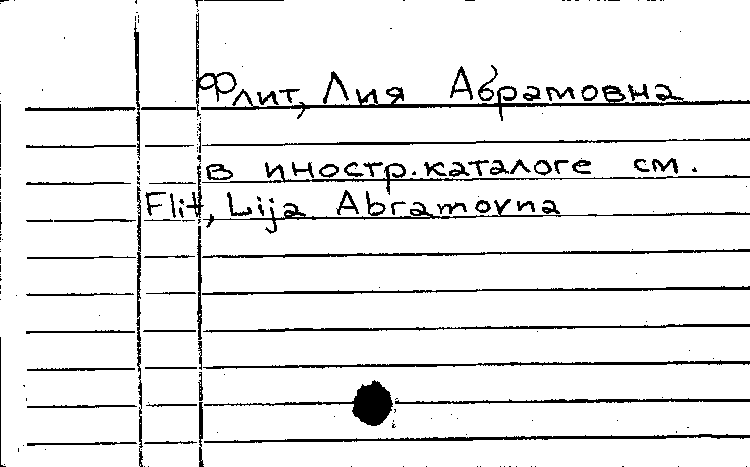 Флит, Лия Абрамовна
в иностр. каталоге см.
Flit, Lija Abramovna